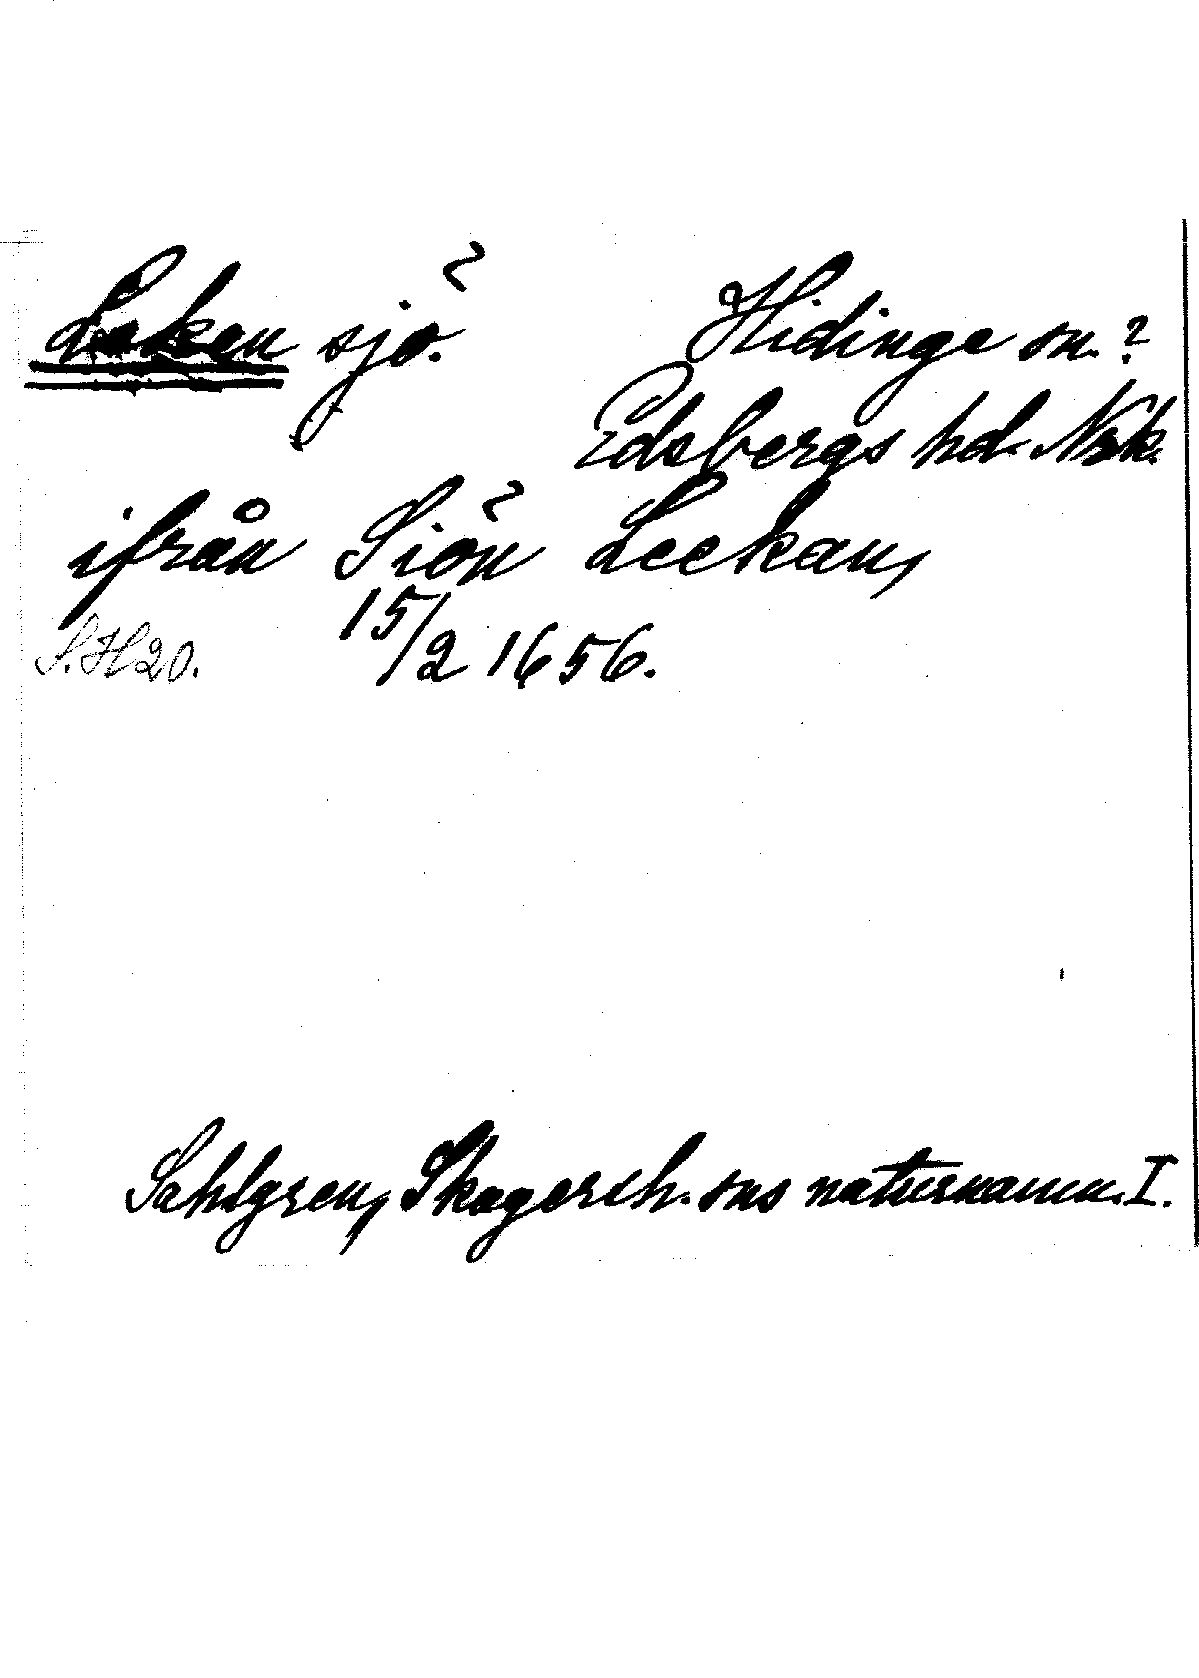 Leken sjö. Hidinge sn.?
Edsbergs hd. Nrk.
ifrån Siön Leekan,
S.H20. 15/2 1656.
Sahlgren, Skagersh. sns naturnamn. I.